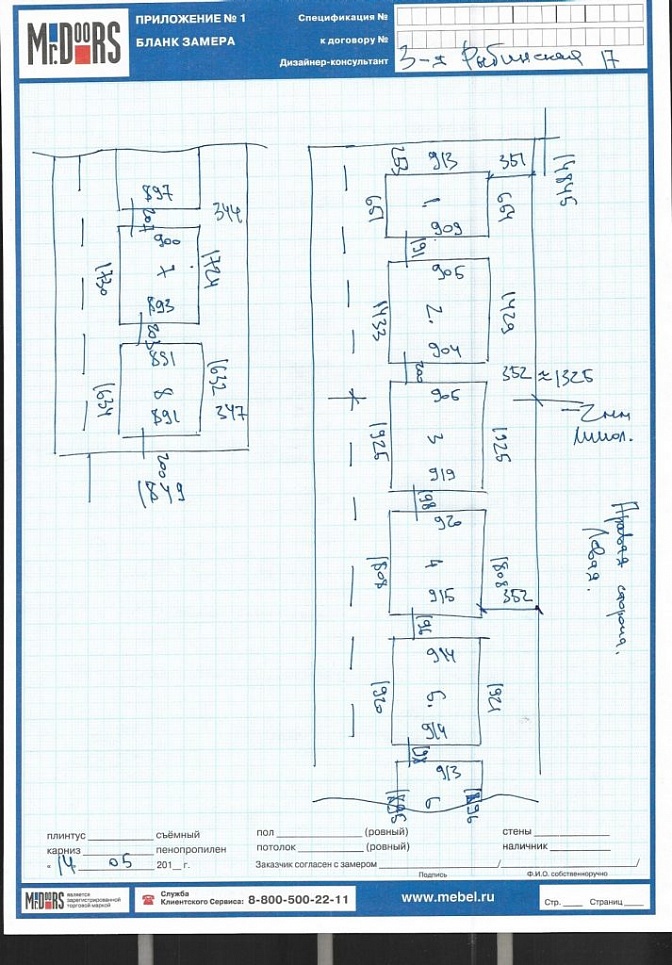 Mr.DOORS
ПРИЛОЖЕНИЕ № 1
БЛАНК ЗАМЕРА
Спецификация №
к договору №
Дизайнер-консультант
3-я Рыбинская 17
897
207
344
900
1730
7
1724
893
203
891
1634
8
1632
891
347
200
253
913
351
14845
651
1.
654
909
191
906
1433
2.
1429
904
200
352 ≈1325
906
1925
3
1925
919
198
920
1808
4
1808
915
352
196
914
1920
5.
1921
914
198
913
6
Правая сторона.
Левая.
плинтус съёмный
карниз пенопропилен
« 14 05 201 г.
пол (ровный)
потолок (ровный)
Заказчик согласен с замером / /
Подпись Ф.И.О. собственноручно
стены
наличник
Mr.DOORS является зарегистрированной торговой маркой
Служба
Клиентского Сервиса: 8-800-500-22-11
www.mebel.ru
Стр. Страниц